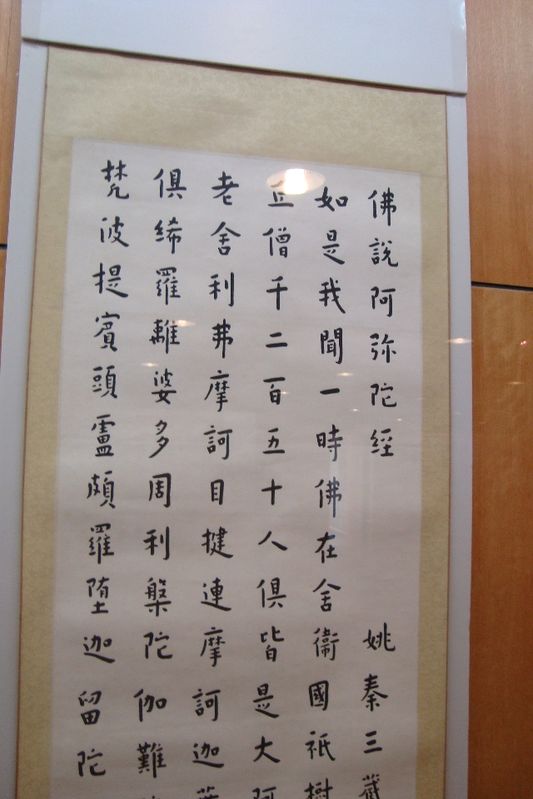 佛說阿弥陀經 姚秦三藏
如是我聞一時佛在舍衛國祇樹
丘僧千二百五十人俱皆是大阿
老舍利弗摩訶目揵連摩訶迦葉
俱絺羅離婆多周利槃陀伽難
梵波提賓頭盧頗羅堕迦留陀